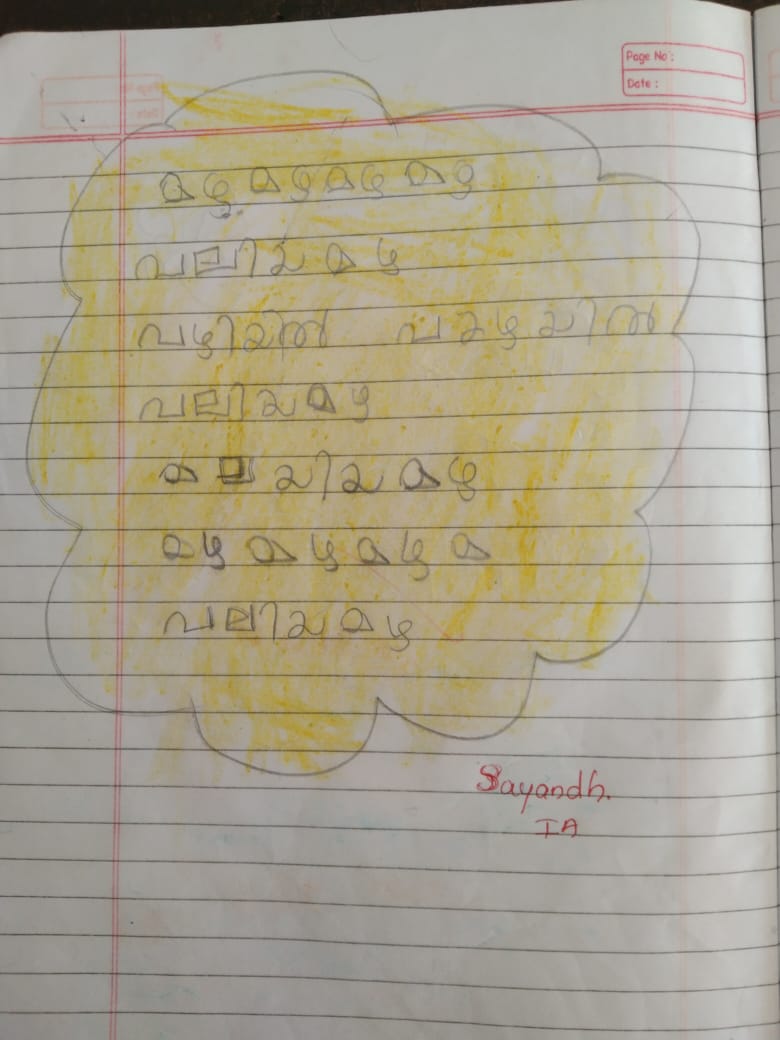 Page No :
Date :
മഴ മഴ മഴ മഴ
വലിയ മഴ
വഴിയിൽ വഴയിൽ
വലിയ മഴ
മലയിയ മഴ
മഴ മഴ മഴ മ
വലിയ മഴ
Sayandh.
I A